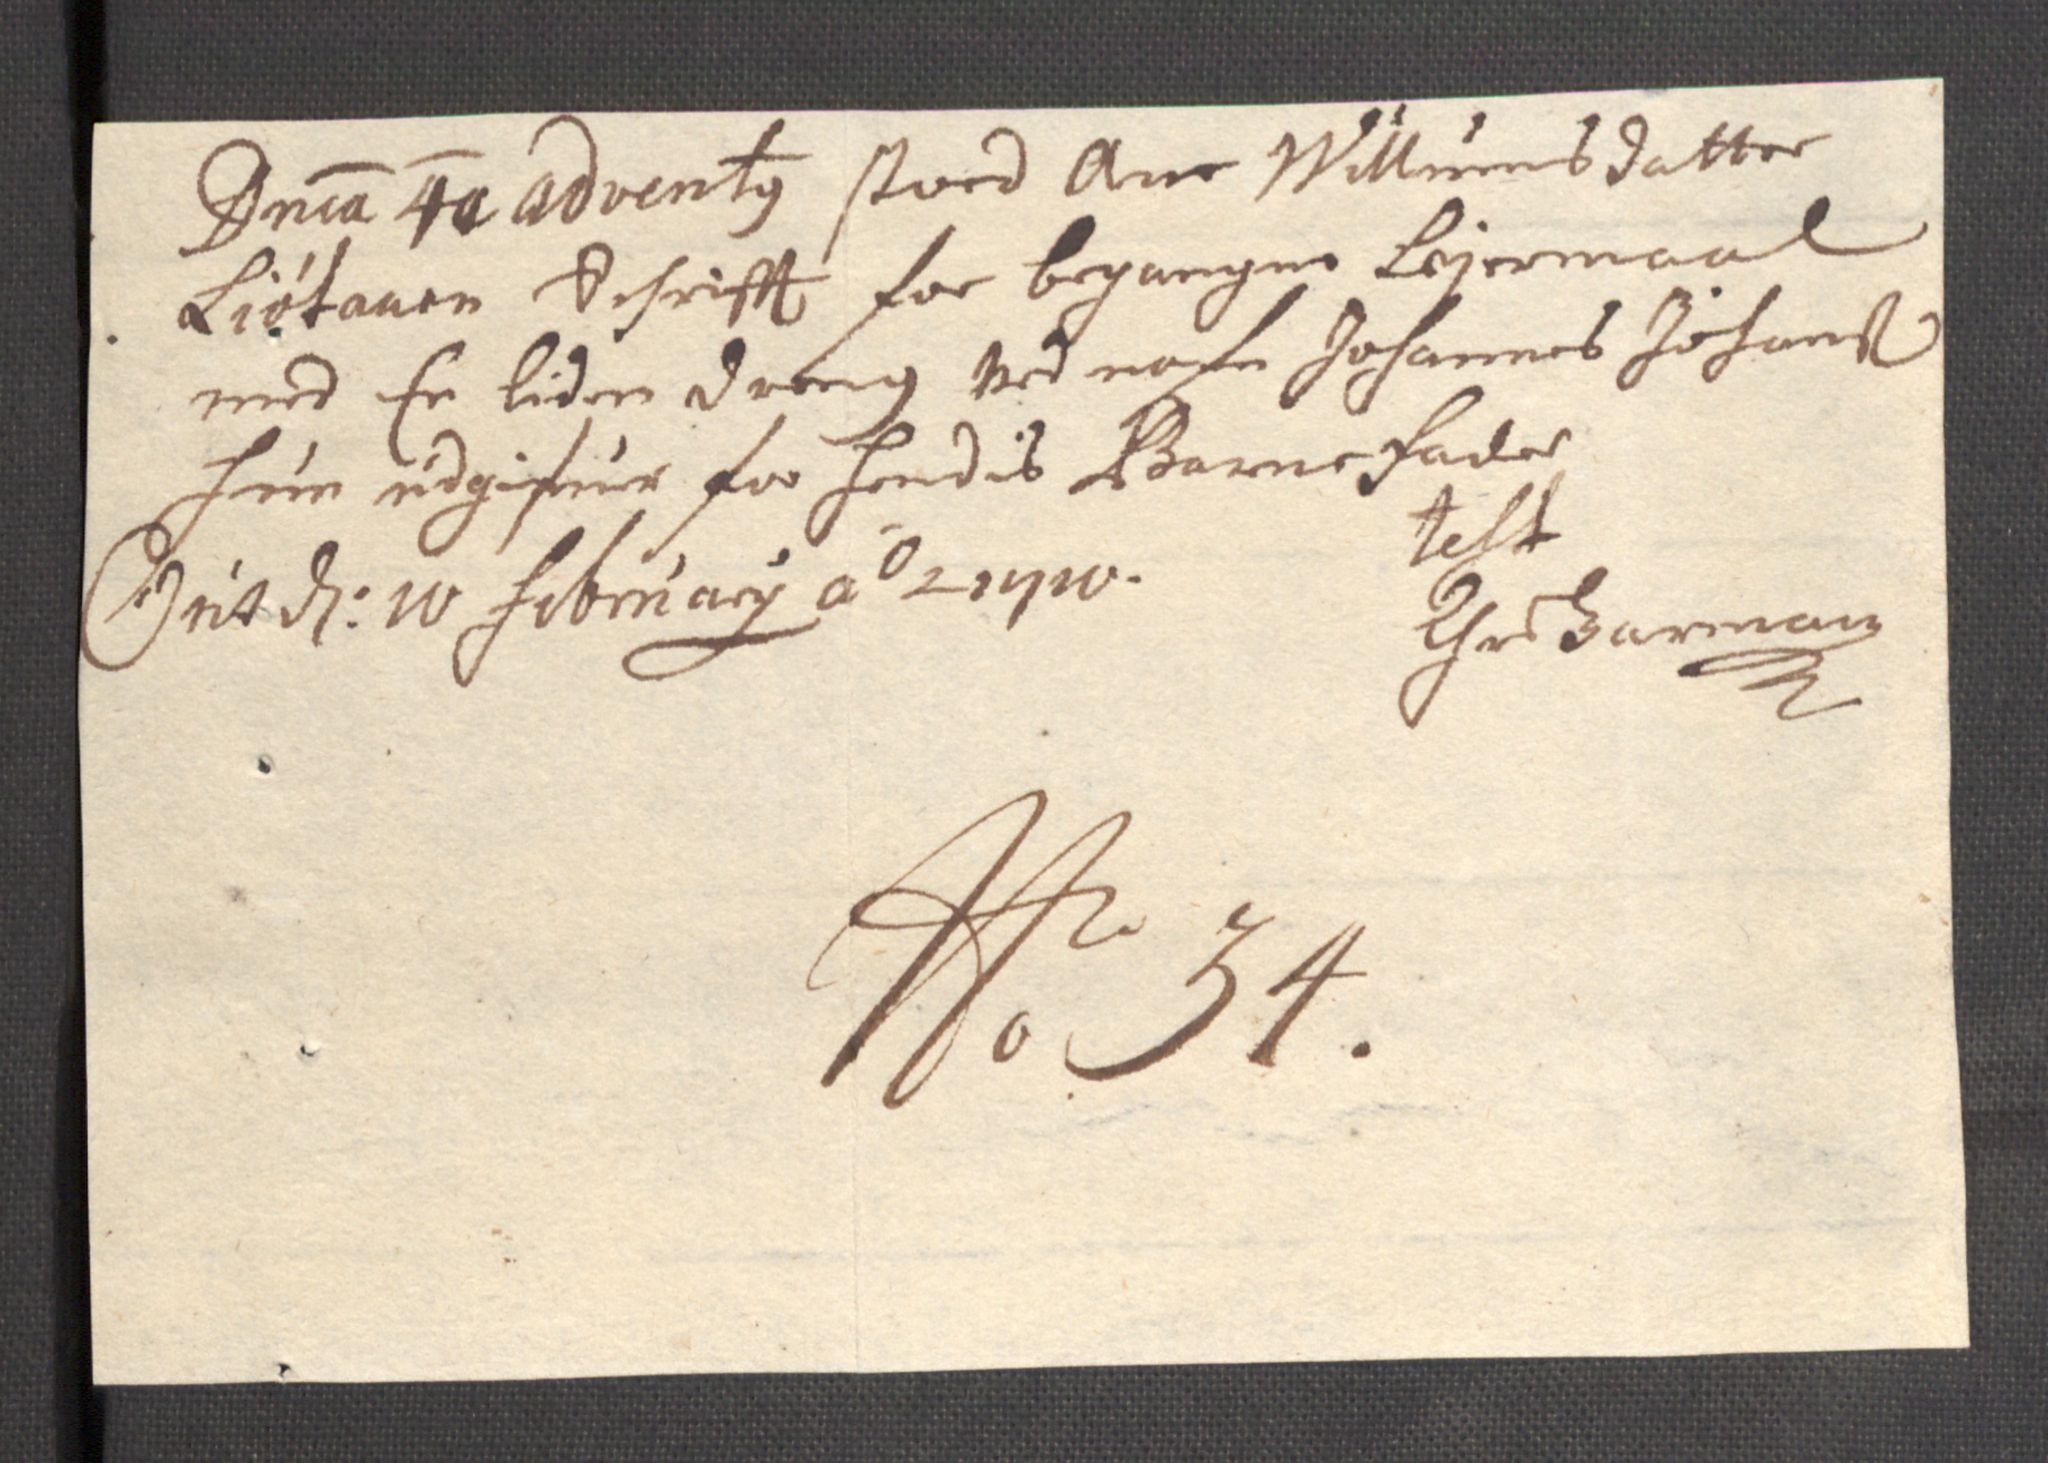 Dnica 4ta Adventus stoed Ane Willumsdatter
Liøtauen Schrifft for begangne Leyermaal
med En liden dreng ved nafn Johannes Johanß
hun udgifuer for hendis Barnefader
d: 10 February ao 1710.
test
Chr Barman
No 34.